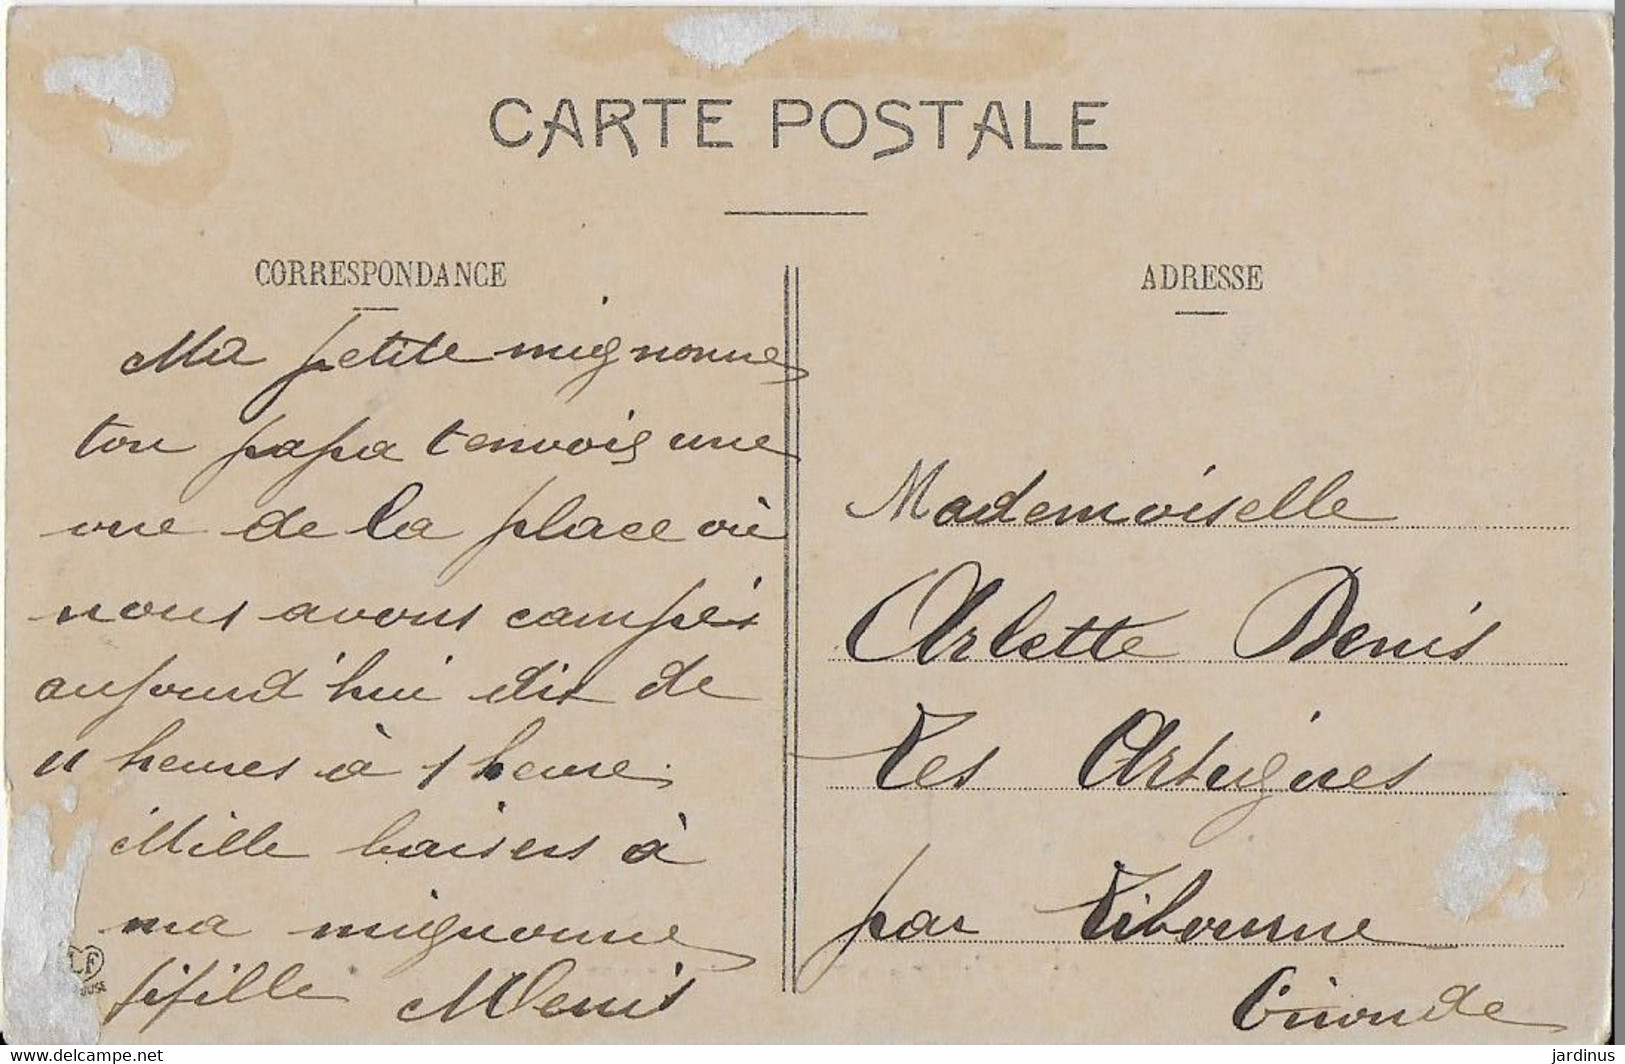 CARTE POSTALE
CORRESPONDANCE
Ma petite mignonne
ton papa t envois une
vue de la place où
nous avons campés
aujourd'hui dix de
11 heures à 1 heure.
Mille baisers à
ma mignonne
fifille MDenis
ADRESSE
Mademoiselle
Arlette Denis
Les Artigues
par Libourne
Gironde
LF
delcampe.net
jardinus